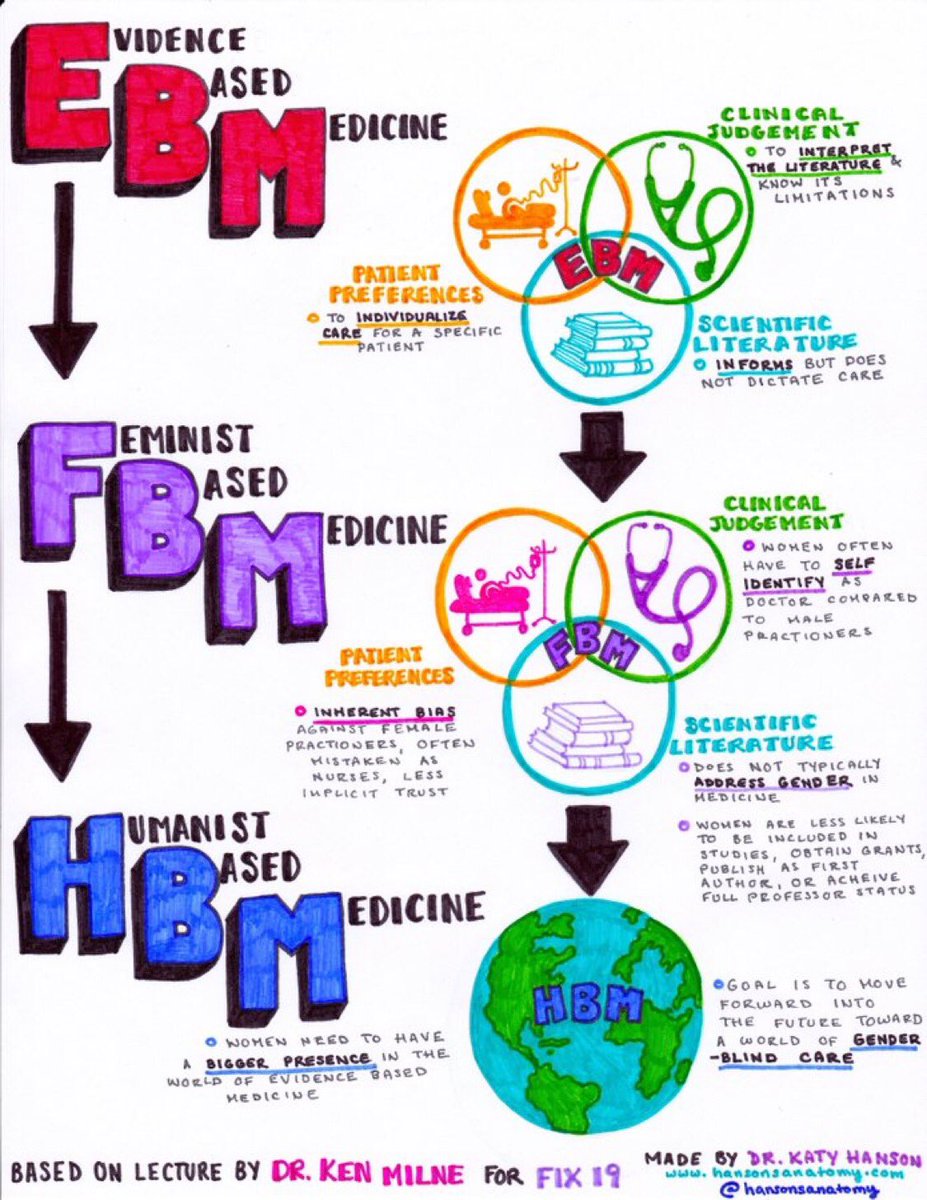 EVIDENCE
BASED
MEDICINE
CLINICAL
JUDGEMENT
TO INTERPRET
THE LITERATURE &
KNOW ITS
LIMITATIONS
EBM
PATIENT
PREFERENCES
TO INDIVIDUALIZE
CARE FOR A SPECIFIC
PATIENT
SCIENTIFIC
LITERATURE
INFORMS BUT DOES
NOT DICTATE CARE
FEMINIST
BASED
MEDICINE
CLINICAL
JUDGEMENT
WOMEN OFTEN
HAVE TO SELF
IDENTIFY AS
DOCTOR COMPARED
TO MALE
PRACTIONERS
FBM
PATIENT
PREFERENCES
INHERENT BIAS
AGAINST FEMALE
PRACTIONERS, OFTEN
MISTAKEN AS
NURSES, LESS
IMPLICIT TRUST
SCIENTIFIC
LITERATURE
DOES NOT TYPICALLY
ADDRESS GENDER IN
MEDICINE
WOMEN ARE LESS LIKELY
TO BE INCLUDED IN
STUDIES, OBTAIN GRANTS,
PUBLISH AS FIRST
AUTHOR, OR ACHEIVE
FULL PROFESSOR STATUS
HUMANIST
BASED
MEDICINE
WOMEN NEED TO HAVE
A BIGGER PRESENCE IN THE
WORLD OF EVIDENCE BASED
MEDICINE
HBM
GOAL IS TO MOVE
FORWARD INTO
THE FUTURE TOWARD
A WORLD OF GENDER
-BLIND CARE
BASED ON LECTURE BY DR. KEN MILNE FOR FIX 19
MADE BY DR. KATY HANSON
www.hansonsanatomy.com
@hansonsanatomy